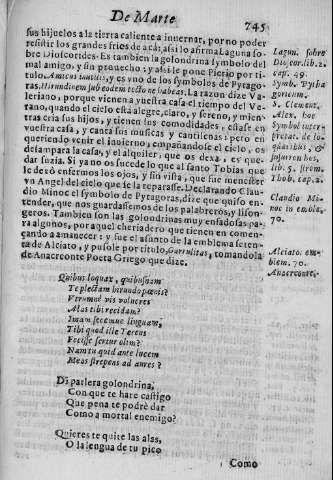 De Marte
745
sus hijuelos a la tierra caliente a inuernar, por no poder
resistir los grandes frios de acà; assi lo afirma Laguna so-
bre Dioscorides. Es tambien la golondrina symbolo del
mal amigo, y sin prouecho; y assi le pone Pierio por ti-
tulo. Amicus inutilis, y es vno de los symbolos de Pytago-
ras. Hirundinem sub eodem tecto ne habeas. La razon dize Va-
leriano, porque vienen a vuestra casa el tiempo del Ve-
rano, quando el cielo està alegre, claro, y sereno, y mien-
tras cria sus hijos, y tienen sus comodidades, estàse en
vuestra casa, y canta sus musicas y cantilenas: pero en
queriendo venir el inuierno, empañandose el cielo, os
desampara la casa, y el alquiler, que os dexa, es que-
dar suzia. Si ya no os sucede lo que al santo Tobias que
le dexò enfermos los ojos, y sin vista, que fue menester
vn Angel del cielo que se la reparasse. Declarando Clau-
dio Minoe el symbolo de Pytagoras, dize que quiso en-
tender, que nos guardassemos de los palabreros, y lison-
geros. Tambien son las golondrinas muy enfadosas pa-
ra algunos, por aquel cheriadero que tienen en comen-
çando a amanecer: y fue el assunto de la emblema seten-
ta de Alciato, y pusole por titulo, Garrulitas, tomandola
de Anacreonte Poeta Griego que dize.
Lagun. sobre
Dioscor. lib. 2.
cap. 49.
Symb. Pytha
goricum.
S. Clement.
Alex. hoc
Symbol. interp
pretat. de lo-
quacibus, &
lib. 5. strom.
Thob. cap. 2.
Claudio Mi-
noe in embla.
70.
Alciato. em-
blem. 70.
Anacreonte.
Quibus loquax, quibusnam
Te plectam hirundo pœnis?
Vtrumne vis volucres
Alas tibi recidam?
Imam secemue linguam,
Tibi quod ille Tereus
Fecisse fertur olim?
Nam tu quid ante lucem
Meas strepens ad aures?
Di parlera golondrina,
Con que te hare castigo
Que pena te podrè dar
Como a mortal enemigo?
Quieres te quite las alas,
O la lengua de tu pico
Como